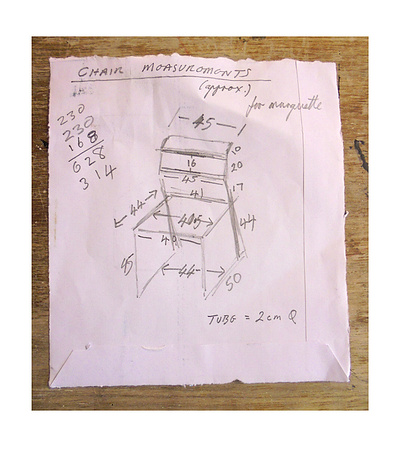 CHAIR MEASUROMENTS
(approx.)
for maequette
230
230
168
628
314
45
10
16
20
45
17
41
44
44
40
45
44
50
TUBE = 2cm Q